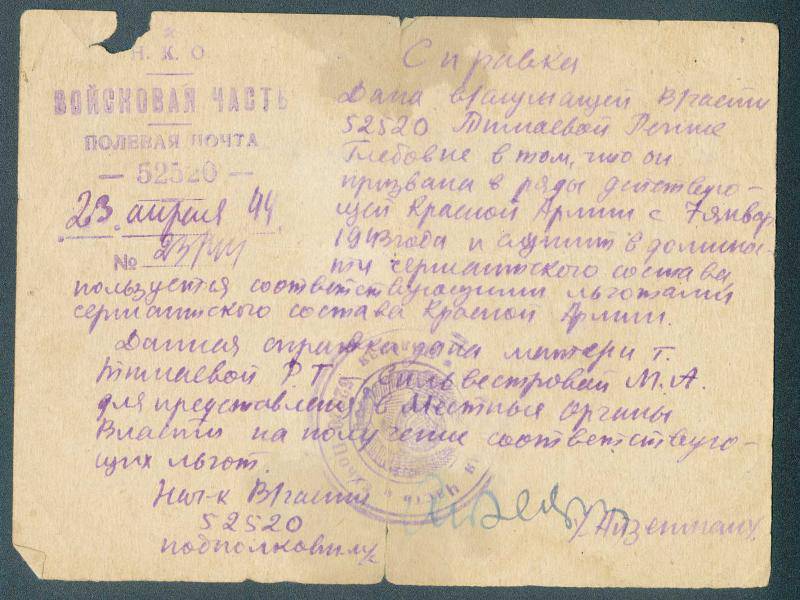 Н. К. О
ВОЙСКОВАЯ ЧАСТЬ
ПОЛЕВАЯ ПОЧТА
— 52520 —
23 апреля 44
№
Справка
Дана в/служащей В/части
52520 Тишаевой Регине
Глебовне в том, что он
призвана в ряды действую-
щей Красной Армии с 7 январ
1943 года и служит в должно-
сти сержантского состава,
пользуется соответствующими льготами
сержантского состава Красной Армии.
Данная справка дана матери т.
Тишаевой Р.Г. Сильвестровой М.А.
для представления в Местные органы
Власти на получение соответствую-
щих льгот.
Нач-к В/части
52520
подполковник
/Айзенман/.